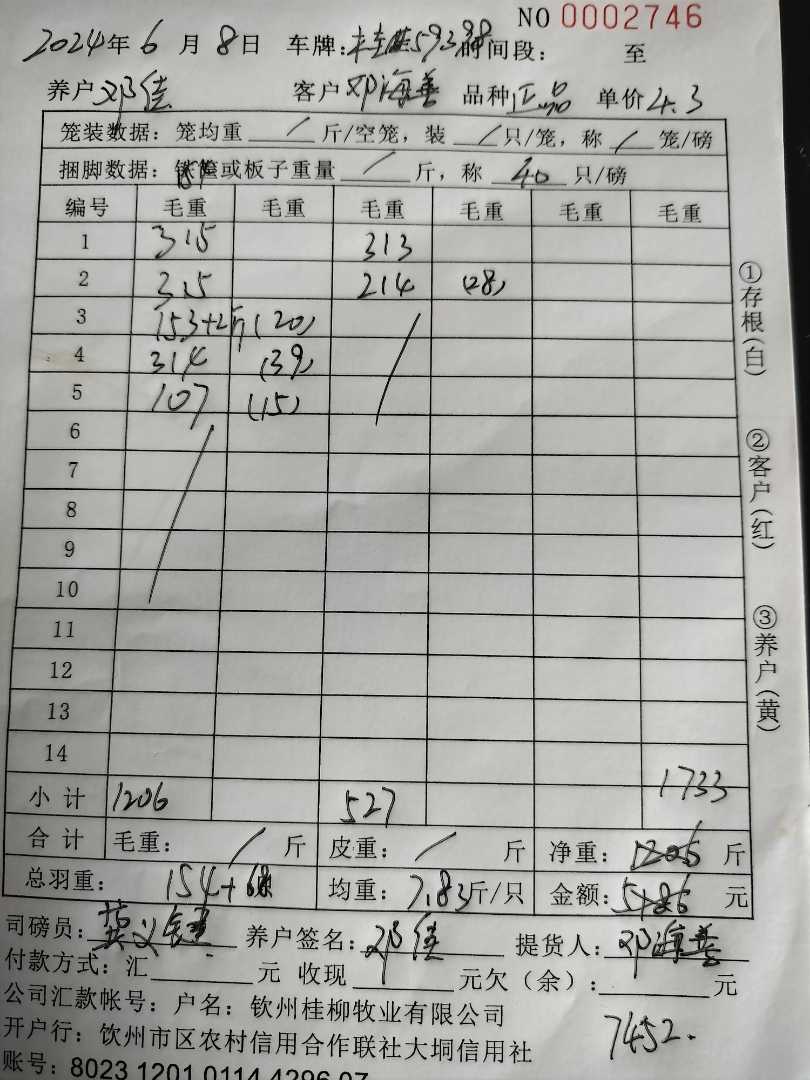 NO 0002746
2024年 6 月 8 日 车牌: 593 时间段: 至
养户 邓佳 客户 邓海善 品种 正品 单价 4.3
笼装数据: 笼均重 / 斤/空笼, 装 / 只/笼, 称 / 笼/磅
捆脚数据: 铁筐或板子重量 / 斤, 称 40 只/磅
编号 毛重 毛重 毛重 毛重 毛重 毛重
1 315 313
2 315 214 (28)
3 153+2斤(20) /
4 314 (39)
5 107 (15)
6 /
7
8
9
10
11
12
13
14
小计 1206 527 1733
合计 毛重: / 斤 皮重: / 斤 净重: 1206 斤
总羽重: 154+68 均重: 7.83斤/只 金额: 5186 元
司磅员: 养户签名: 邓佳 提货人: 邓海善
付款方式: 汇 元 收现 元欠(余): 元
公司汇款帐号: 户名: 钦州桂柳牧业有限公司
7452.
开户行: 钦州市区农村信用合作联社大垌信用社
账号: 8023 1201 0114 4296 07
①存根(白)
②客户(红)
③养户(黄)